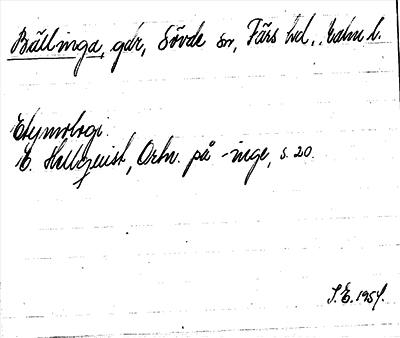 Bällinga, gdr, Sövde sn, Färs hd, Malm l.
Etymologi.
E. Hellquist, Ortn. på -inge, s. 20.
S.E. 1954.